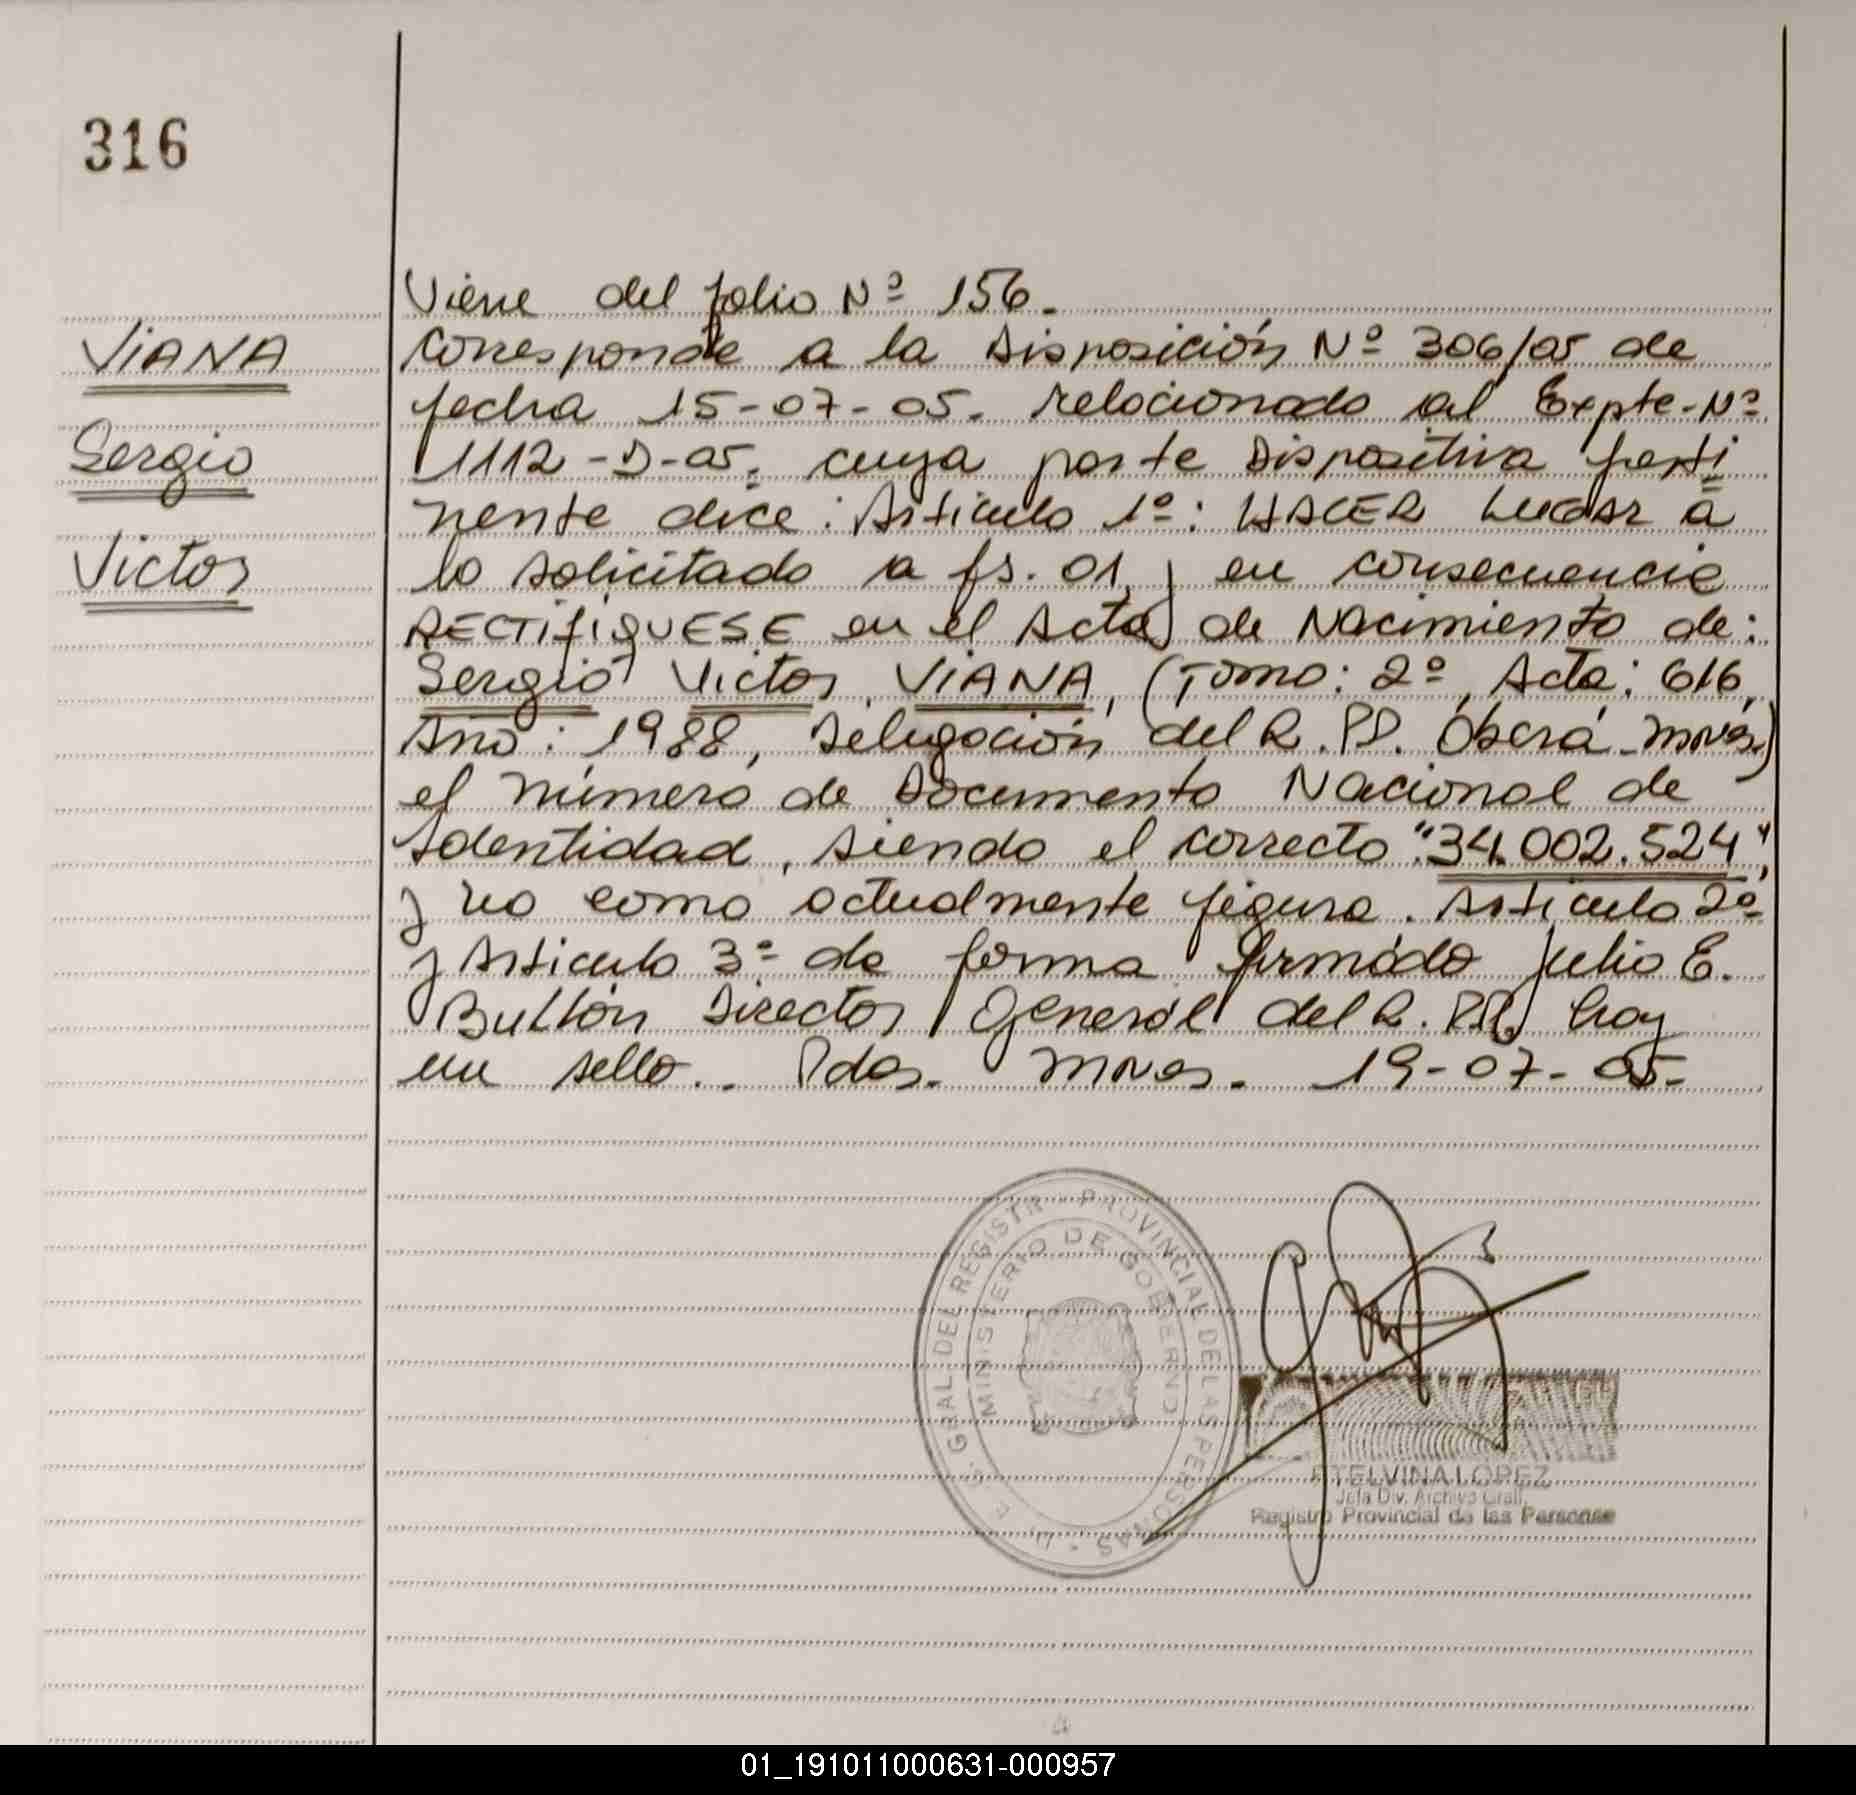 316
VIANA
Sergio
Victor
Viene del folio Nº 156.
Corresponde a la Disposición Nº 306/05 de
fecha 15-07-05. relacionado al Expte-Nº
1112-D-05. cuya parte Dispositiva perti
nente dice: Articulo 1º: HACER LUGAR a
lo solicitado a fs. 01 y en consecuencia
RECTIFIQUESE en el Acta de Nacimiento de:
Sergio Victor VIANA, (Tomo: 2º, Acta: 616,
Año: 1988, Delegación del R.PP. Oberá-Mnes)
el número de Documento Nacional de
Identidad, siendo el correcto "34.002.524",
y no como actualmente figura. Articulo 2º
y Articulo 3º de forma firmado Julio E.
Bullón Director General del R.PP. hay
un sello.. Pdas. Mnes. 19-07-05-
GRAL. DEL REGISTR PROVINCIAL DE LAS PERSONAS
MINISTERIO DE GOBIERNO
ETELVINA LOPEZ
Jefa Div. Archivo Gral.
Registro Provincial de las Personas
01_191011000631-000957